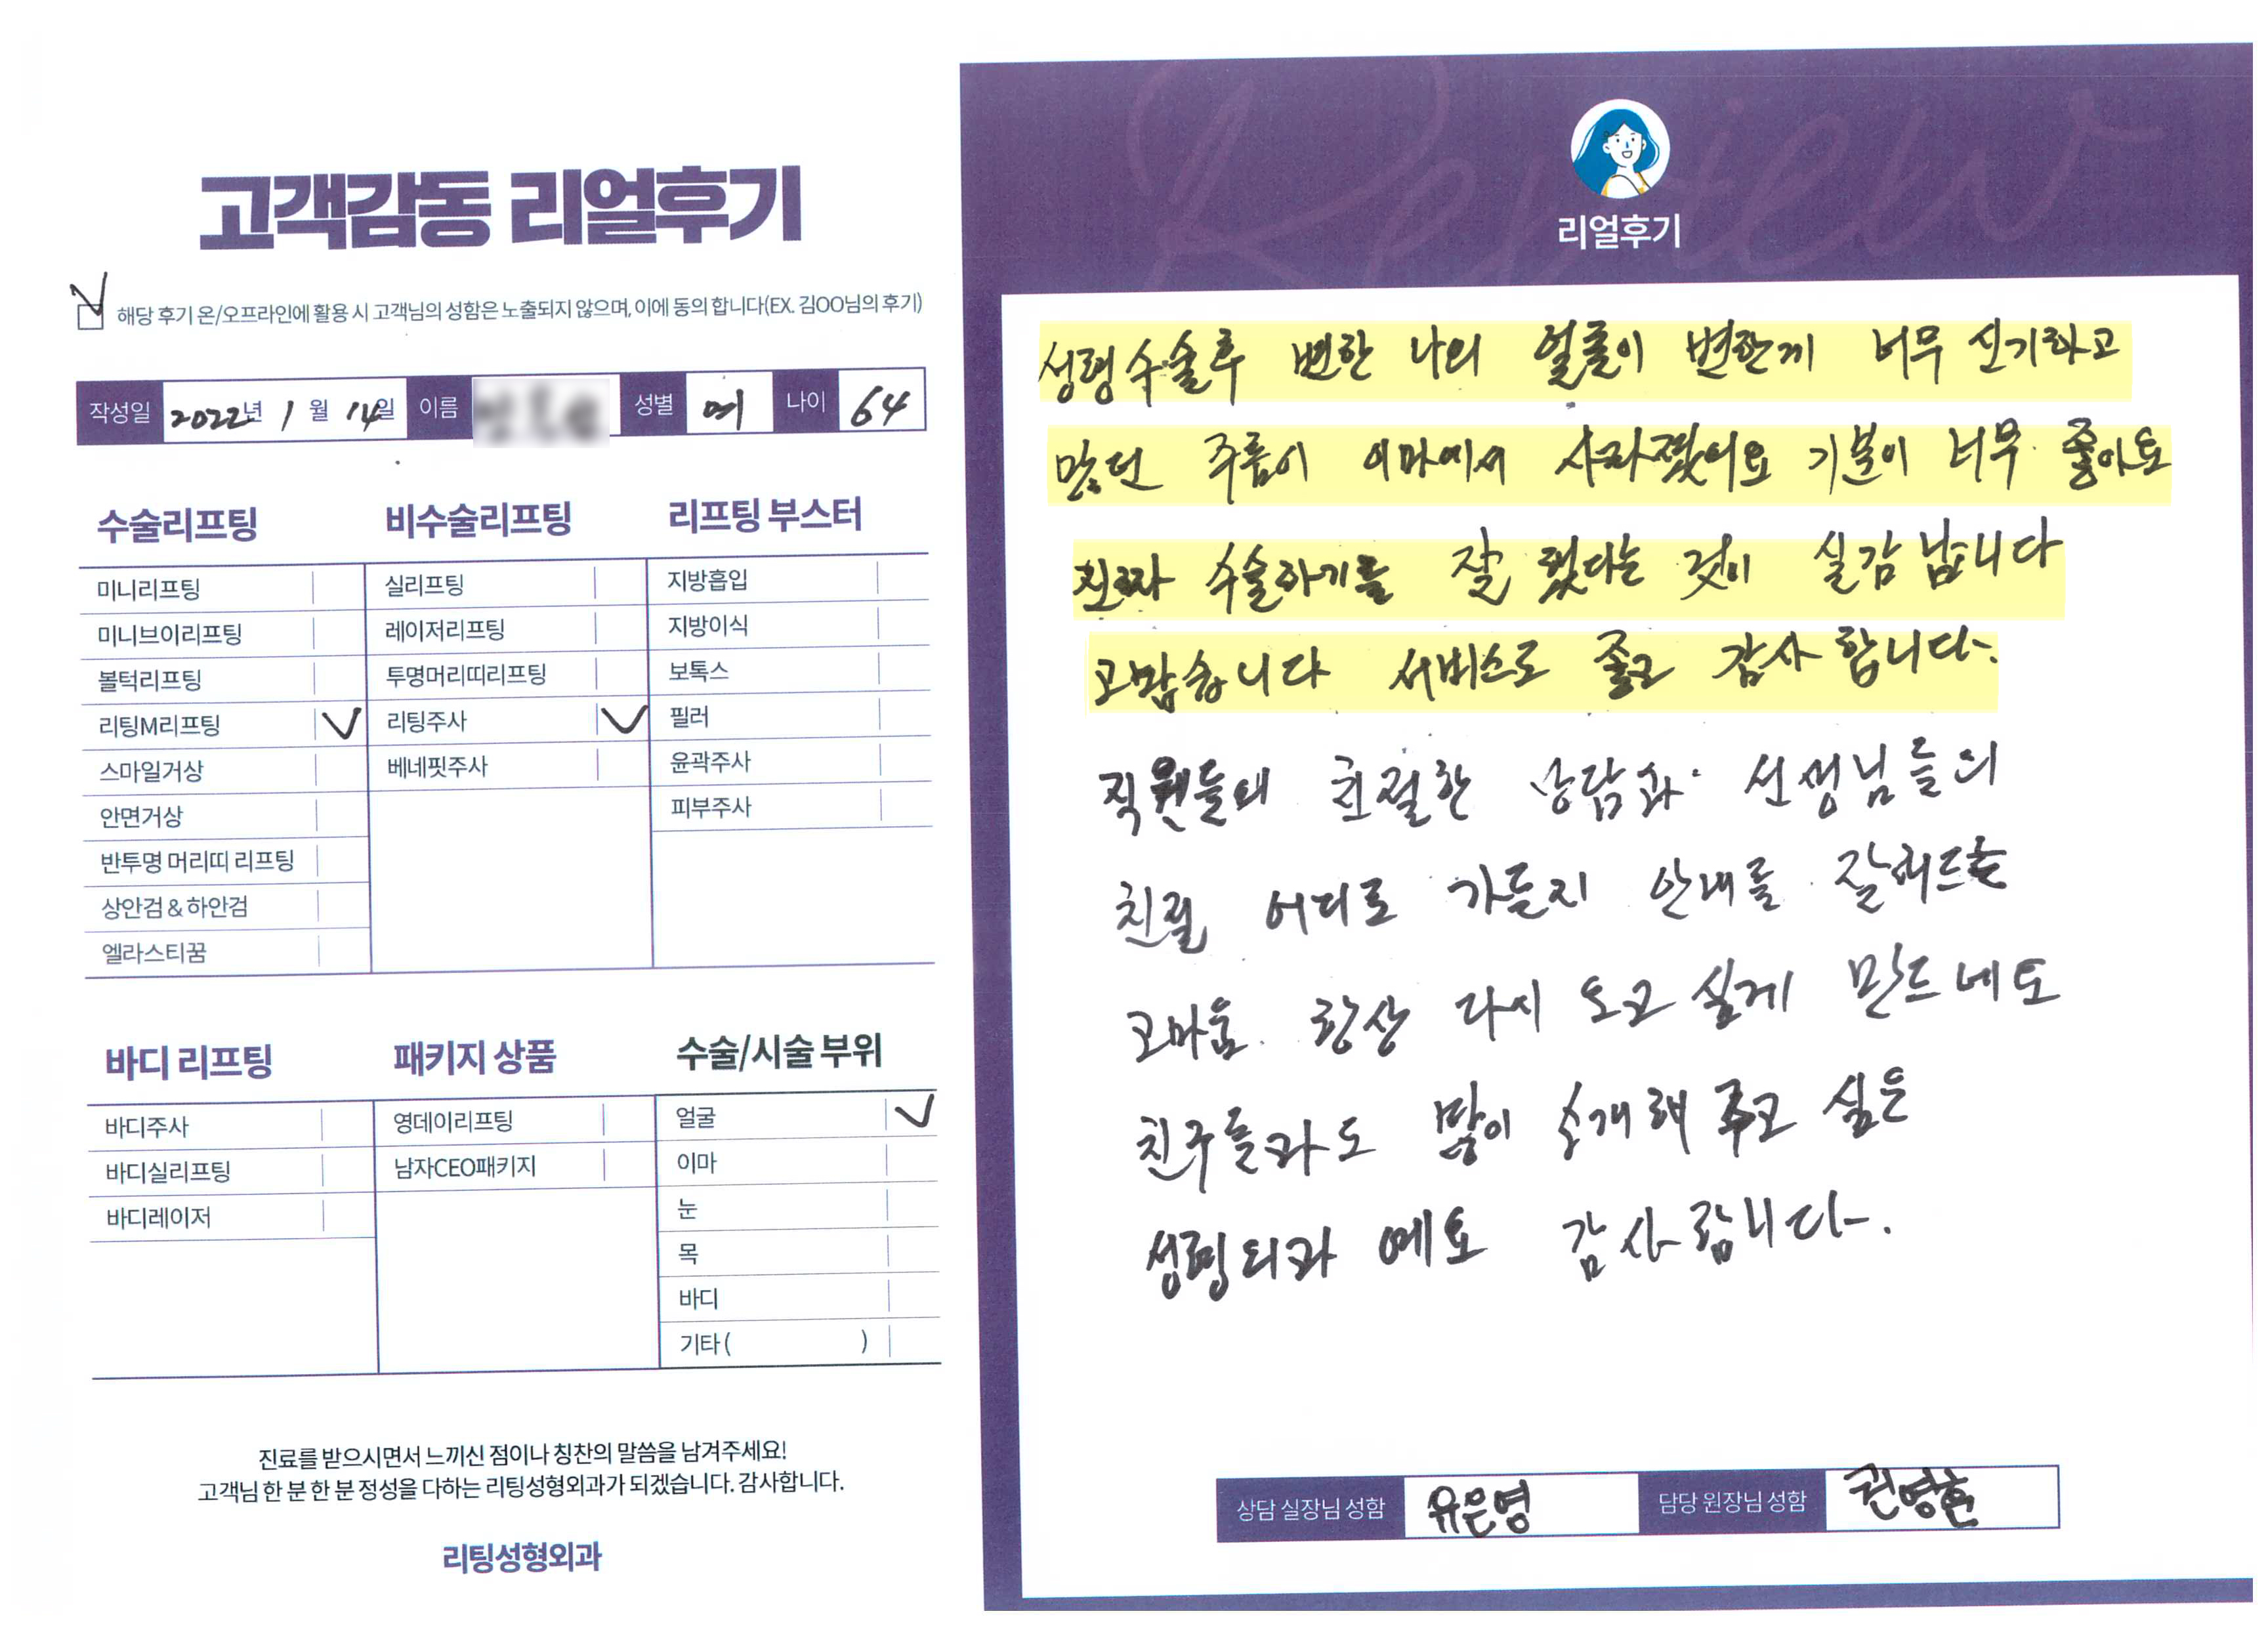 고객감동 리얼후기
해당 후기 온/오프라인에 활용 시 고객님의 성함은 노출되지 않으며, 이에 동의 합니다(EX. 김OO님의 후기)
작성일 2022년 1월 14일 이름 성별 여 나이 64
수술리프팅
미니리프팅
미니브이리프팅
볼턱리프팅
리팅M리프팅
스마일거상
안면거상
반투명 머리띠 리프팅
상안검 & 하안검
엘라스티꿈
비수술리프팅
실리프팅
레이저리프팅
투명머리띠리프팅
리팅주사
베네핏주사
리프팅 부스터
지방흡입
지방이식
보톡스
필러
윤곽주사
피부주사
바디 리프팅
바디주사
바디실리프팅
바디레이저
패키지 상품
영데이리프팅
남자CEO패키지
수술/시술 부위
얼굴
이마
눈
목
바디
기타( )
진료를 받으시면서 느끼신 점이나 칭찬의 말씀을 남겨주세요!
고객님 한 분 한 분 정성을 다하는 리팅성형외과가 되겠습니다. 감사합니다.
리팅성형외과
Review
리얼후기
성형수술후 변한 나의 얼굴이 변한게 너무 신기하고
많던 주름이 이마에서 사라졌어요 기분이 너무 좋아요
진짜 수술하기를 잘 했다는 것이 실감 납니다
고맙습니다 서비스도 좋고 감사합니다.
직원들의 친절한 상담과 선생님들의
친절 어디로 가든지 안내를 잘해드는
고마움 항상 다시 오고 싶게 만드네요
친구들과도 많이 소개해 주고 싶은
성형외과 예요 감사합니다.
상담 실장님 성함 유은영 담당 원장님 성함 권영훈